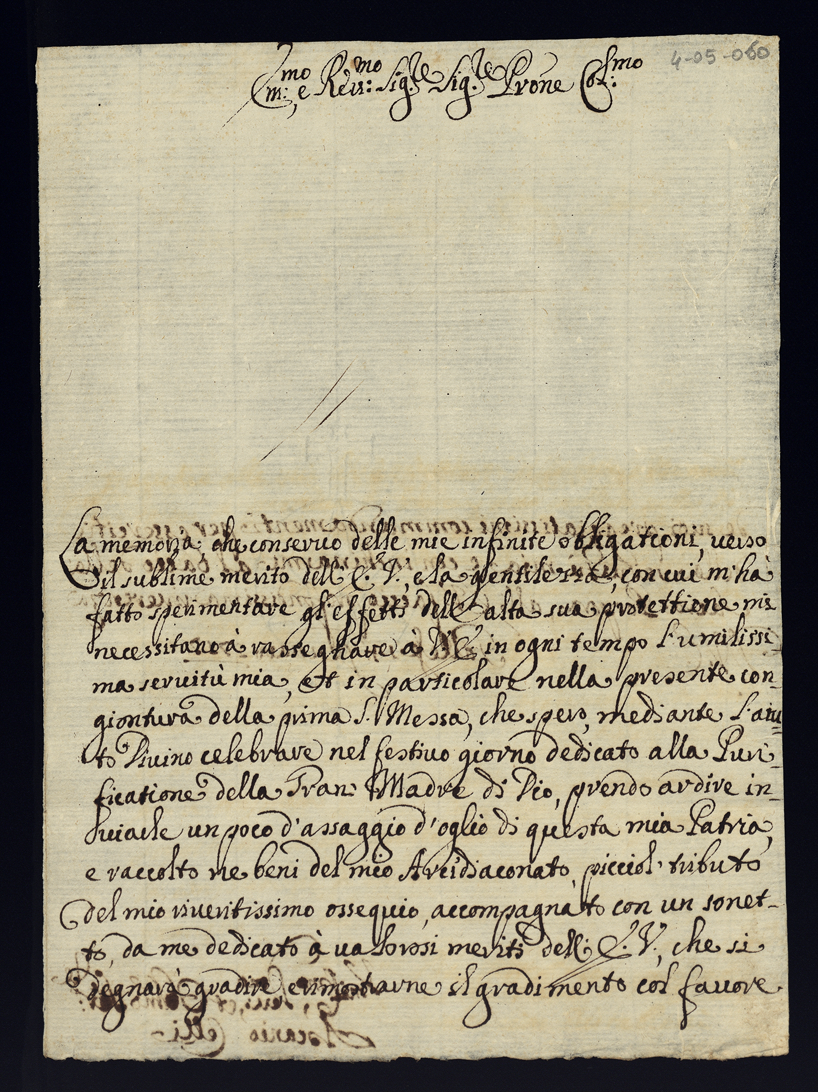 4-05-060
Em:mo e Rev:mo Sig.re Sig.re Prone Col:mo
La memoria che conservo delle mie infinite obligationi, verso
il sublime merito dell' E. V., e la gentilezza, con cui m'hà
fatto sperimentare gl'effetti dell' alta sua protettione mi
necessitano à rassegnare à in ogni tempo l'umilissi-
ma servitù mia, et in particolare nella presente con-
giontura della prima S. Messa, che spero, mediante l'aiu-
to Divino celebrare nel festivo giorno dedicato alla Puri-
ficatione della Gran Madre di Dio, prendo ardire in-
viarle un poco d'assaggio d'oglio di questa mia Patria,
e raccolto ne beni del mio Arcidiaconato, picciol' tributo
del mio riveritissimo ossequio, accompagnato con un sonet-
to, da me dedicato à valorosi meriti dell' E. V., che si
degnarà gradire e rimostrarne il gradimento col favore